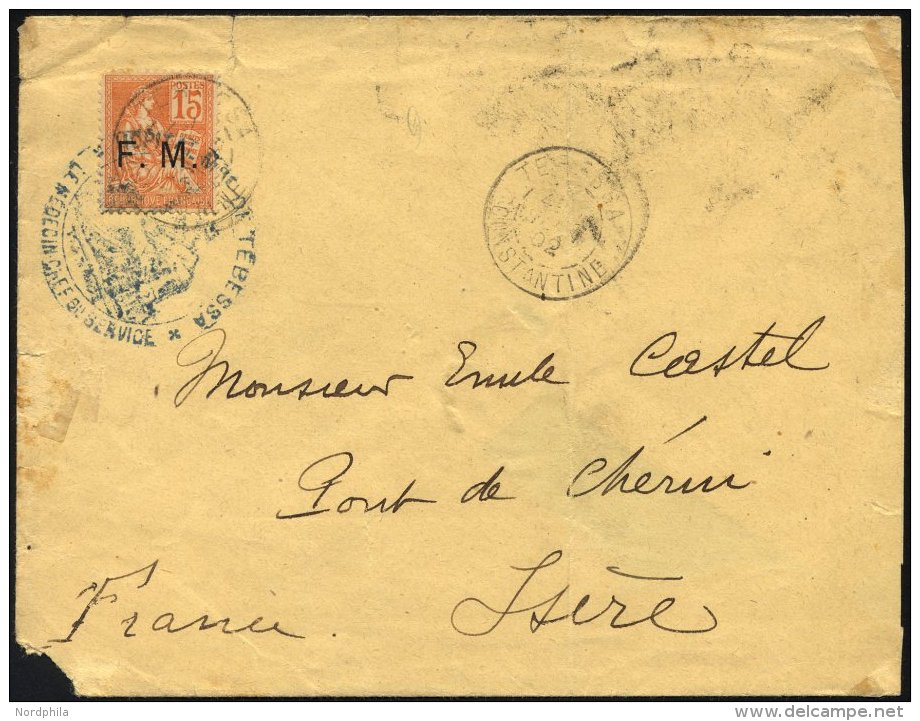 POSTES
15
F. M.
RÉPUBLIQUE FRANÇAISE
TÉBESSA
LE MÉDECIN CHEF DU SERVICE
TEBESSA
02
CONSTANTINE
Monsieur Emile Castel
Pont de Chérui
Isère
France.
Nordphila
delcampe.net